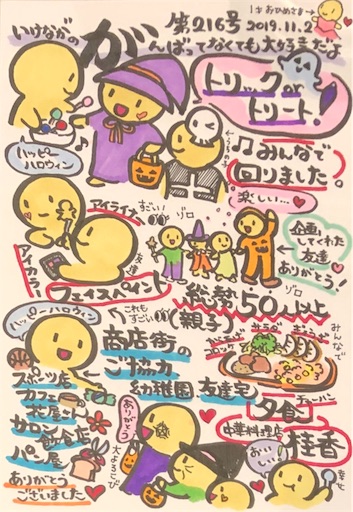 いけながの
第216号 2019.11.2
1才おひめさま→
がんばってなくても大好きだよ
トリック or
トリート!
ハッピー
ハロウィン
♪みんなで
回りました。
楽しい…♥
アイライナー
すごい
ゾロ
ゾロ
企画
してくれた
友達
ありがとう!
アイカラー
友達
フェイスペイント
総勢50人以上
(親子)
ハッピーハロウィン
これも
すごい
商店街の
ご協力
幼稚園 友達宅
スポーツ店
カフェ
花屋さん
サロン
飲食店
パン屋
ありがとう
ございました♥
コロッケ
サラダ
ぎょうざ
みんなで
チャーハン
夕食
中華料理店
桂香
ありがとう
大よろこび
おいしい
幸せ